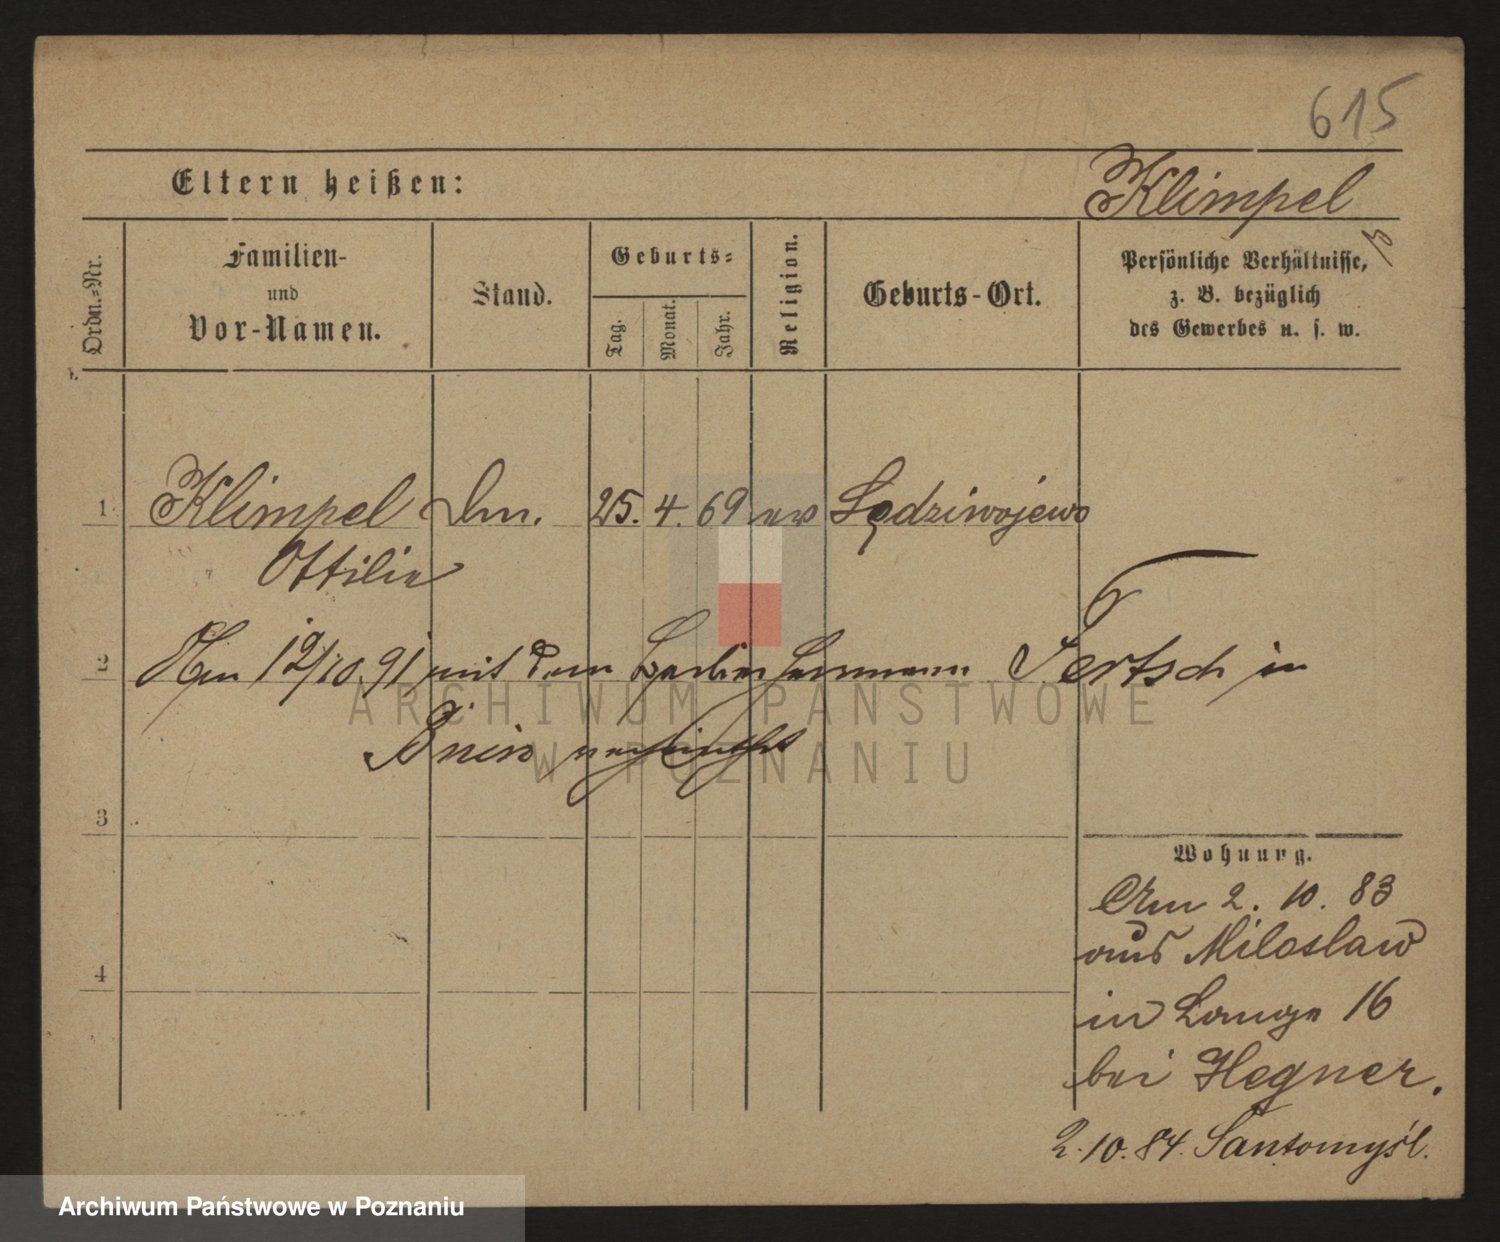 615
Eltern heißen:
Klimpel
Ordn.-Nr.
Familien-
und
Vor-Namen.
Stand.
Geburts-
Tag.
Monat.
Jahr.
Religion.
Geburts-Ort.
Persönliche Verhältnisse,
z. B. bezüglich
des Gewerbes u. s. w.
1 Klimpel Dm. 25. 4. 69 ev Sędziwojewo
Ottilie
2 Am 12/10. 91 mit dem Gerber Hermann Tertsch in
Bnin verheirathet
3
4
Wohnung.
Am 2. 10. 83
aus Miloslaw
in Lange 16
bei Hegner.
2. 10. 84. Santomyśl.
ARCHIWUM PAŃSTWOWE
W POZNANIU
Archiwum Państwowe w Poznaniu